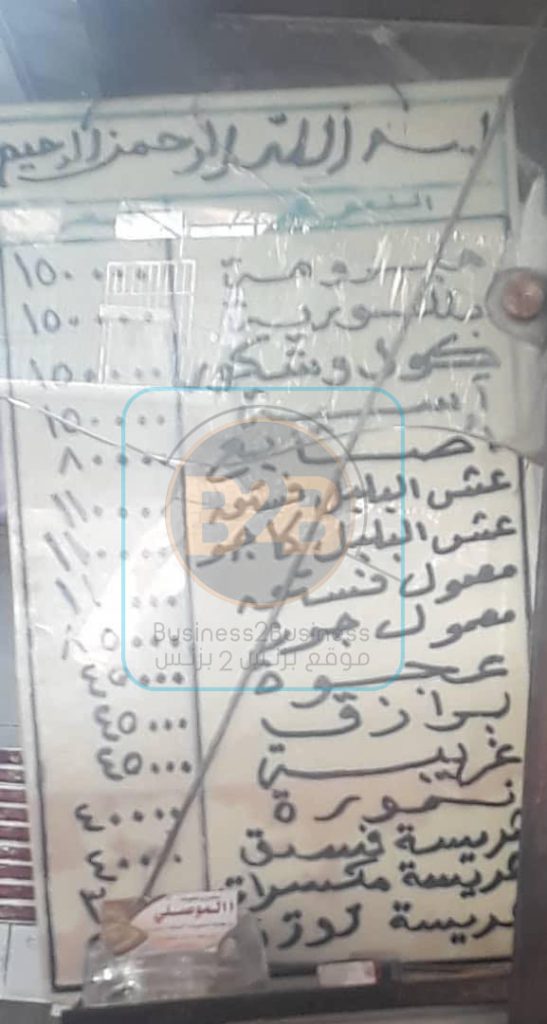 بسم الله الرحمن الرحيم
النوع
مبرومة ١٥٠٠٠٠
بللورية ١٥٠٠٠٠
كول وشكور ١٥٠٠٠٠
آسية ١٥٠٠٠٠
أصابيع ٨٠٠٠٠
عش البلبل فستق ١١٠٠٠٠
عش البلبل كاجو ١١٠٠٠٠
معمول فستق
معمول جوز ٨٥٠٠٠
عجوة ٤٥٠٠٠
برازق ٤٥٠٠٠
غريبة ٤٥٠٠٠
نمورة ٤٠٠٠٠
هريسة فستق ٤٠٠٠٠
هريسة مكسرات
هريسة
الموصلي
B2B
Business2Business
موقع بزنس 2 بزنس